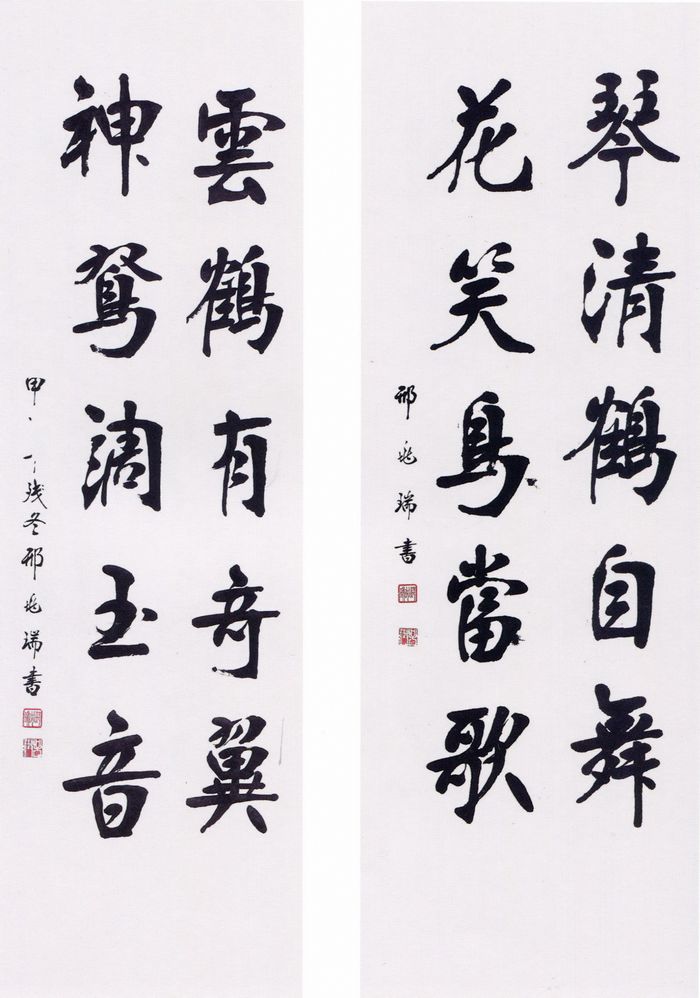 琴清鶴自舞
花笑鳥當歌
邢兆瑞書
雲鶴有奇翼
神鴛調玉音
甲残冬邢兆瑞書